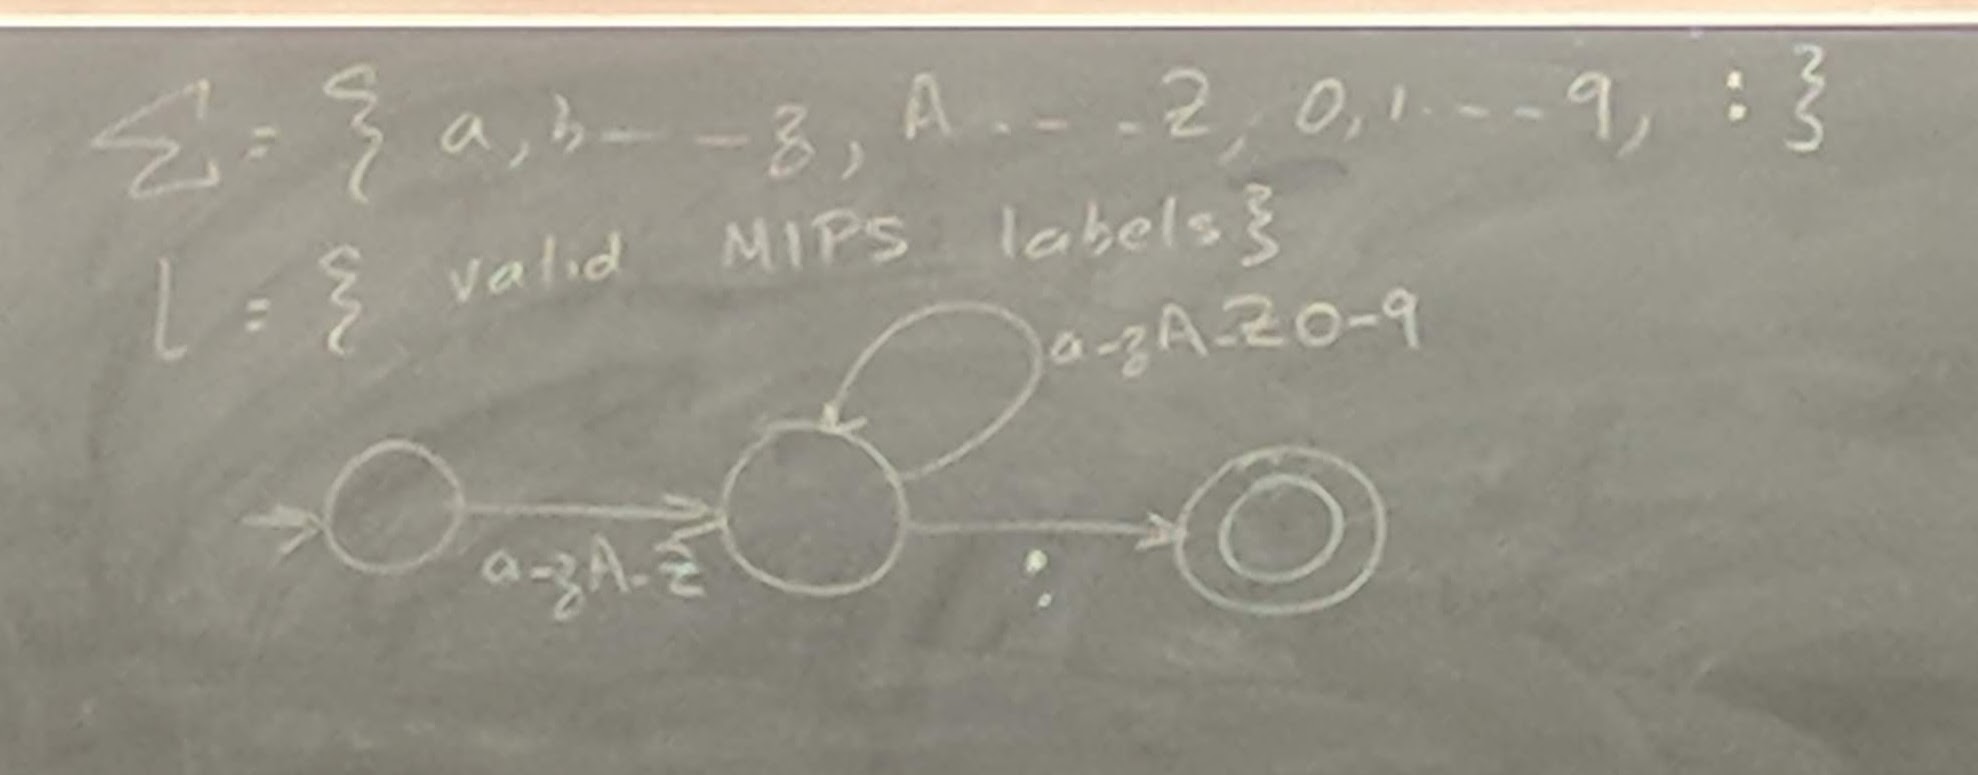 Σ = { a, b - - - z, A . - - . Z, 0, 1 . - - - 9, : }
L = { valid MIPS labels }
a-zA-Z0-9
a-zA-Z
: